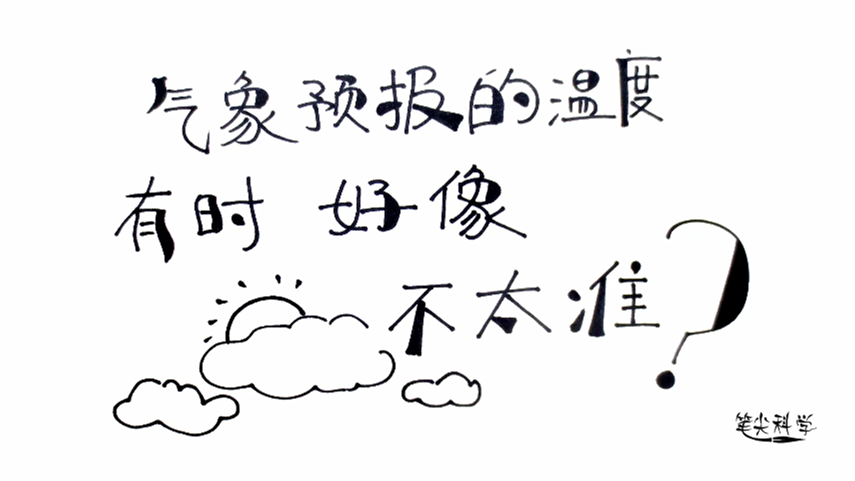 气象预报的温度
有时 好像
不太准?
笔尖科学